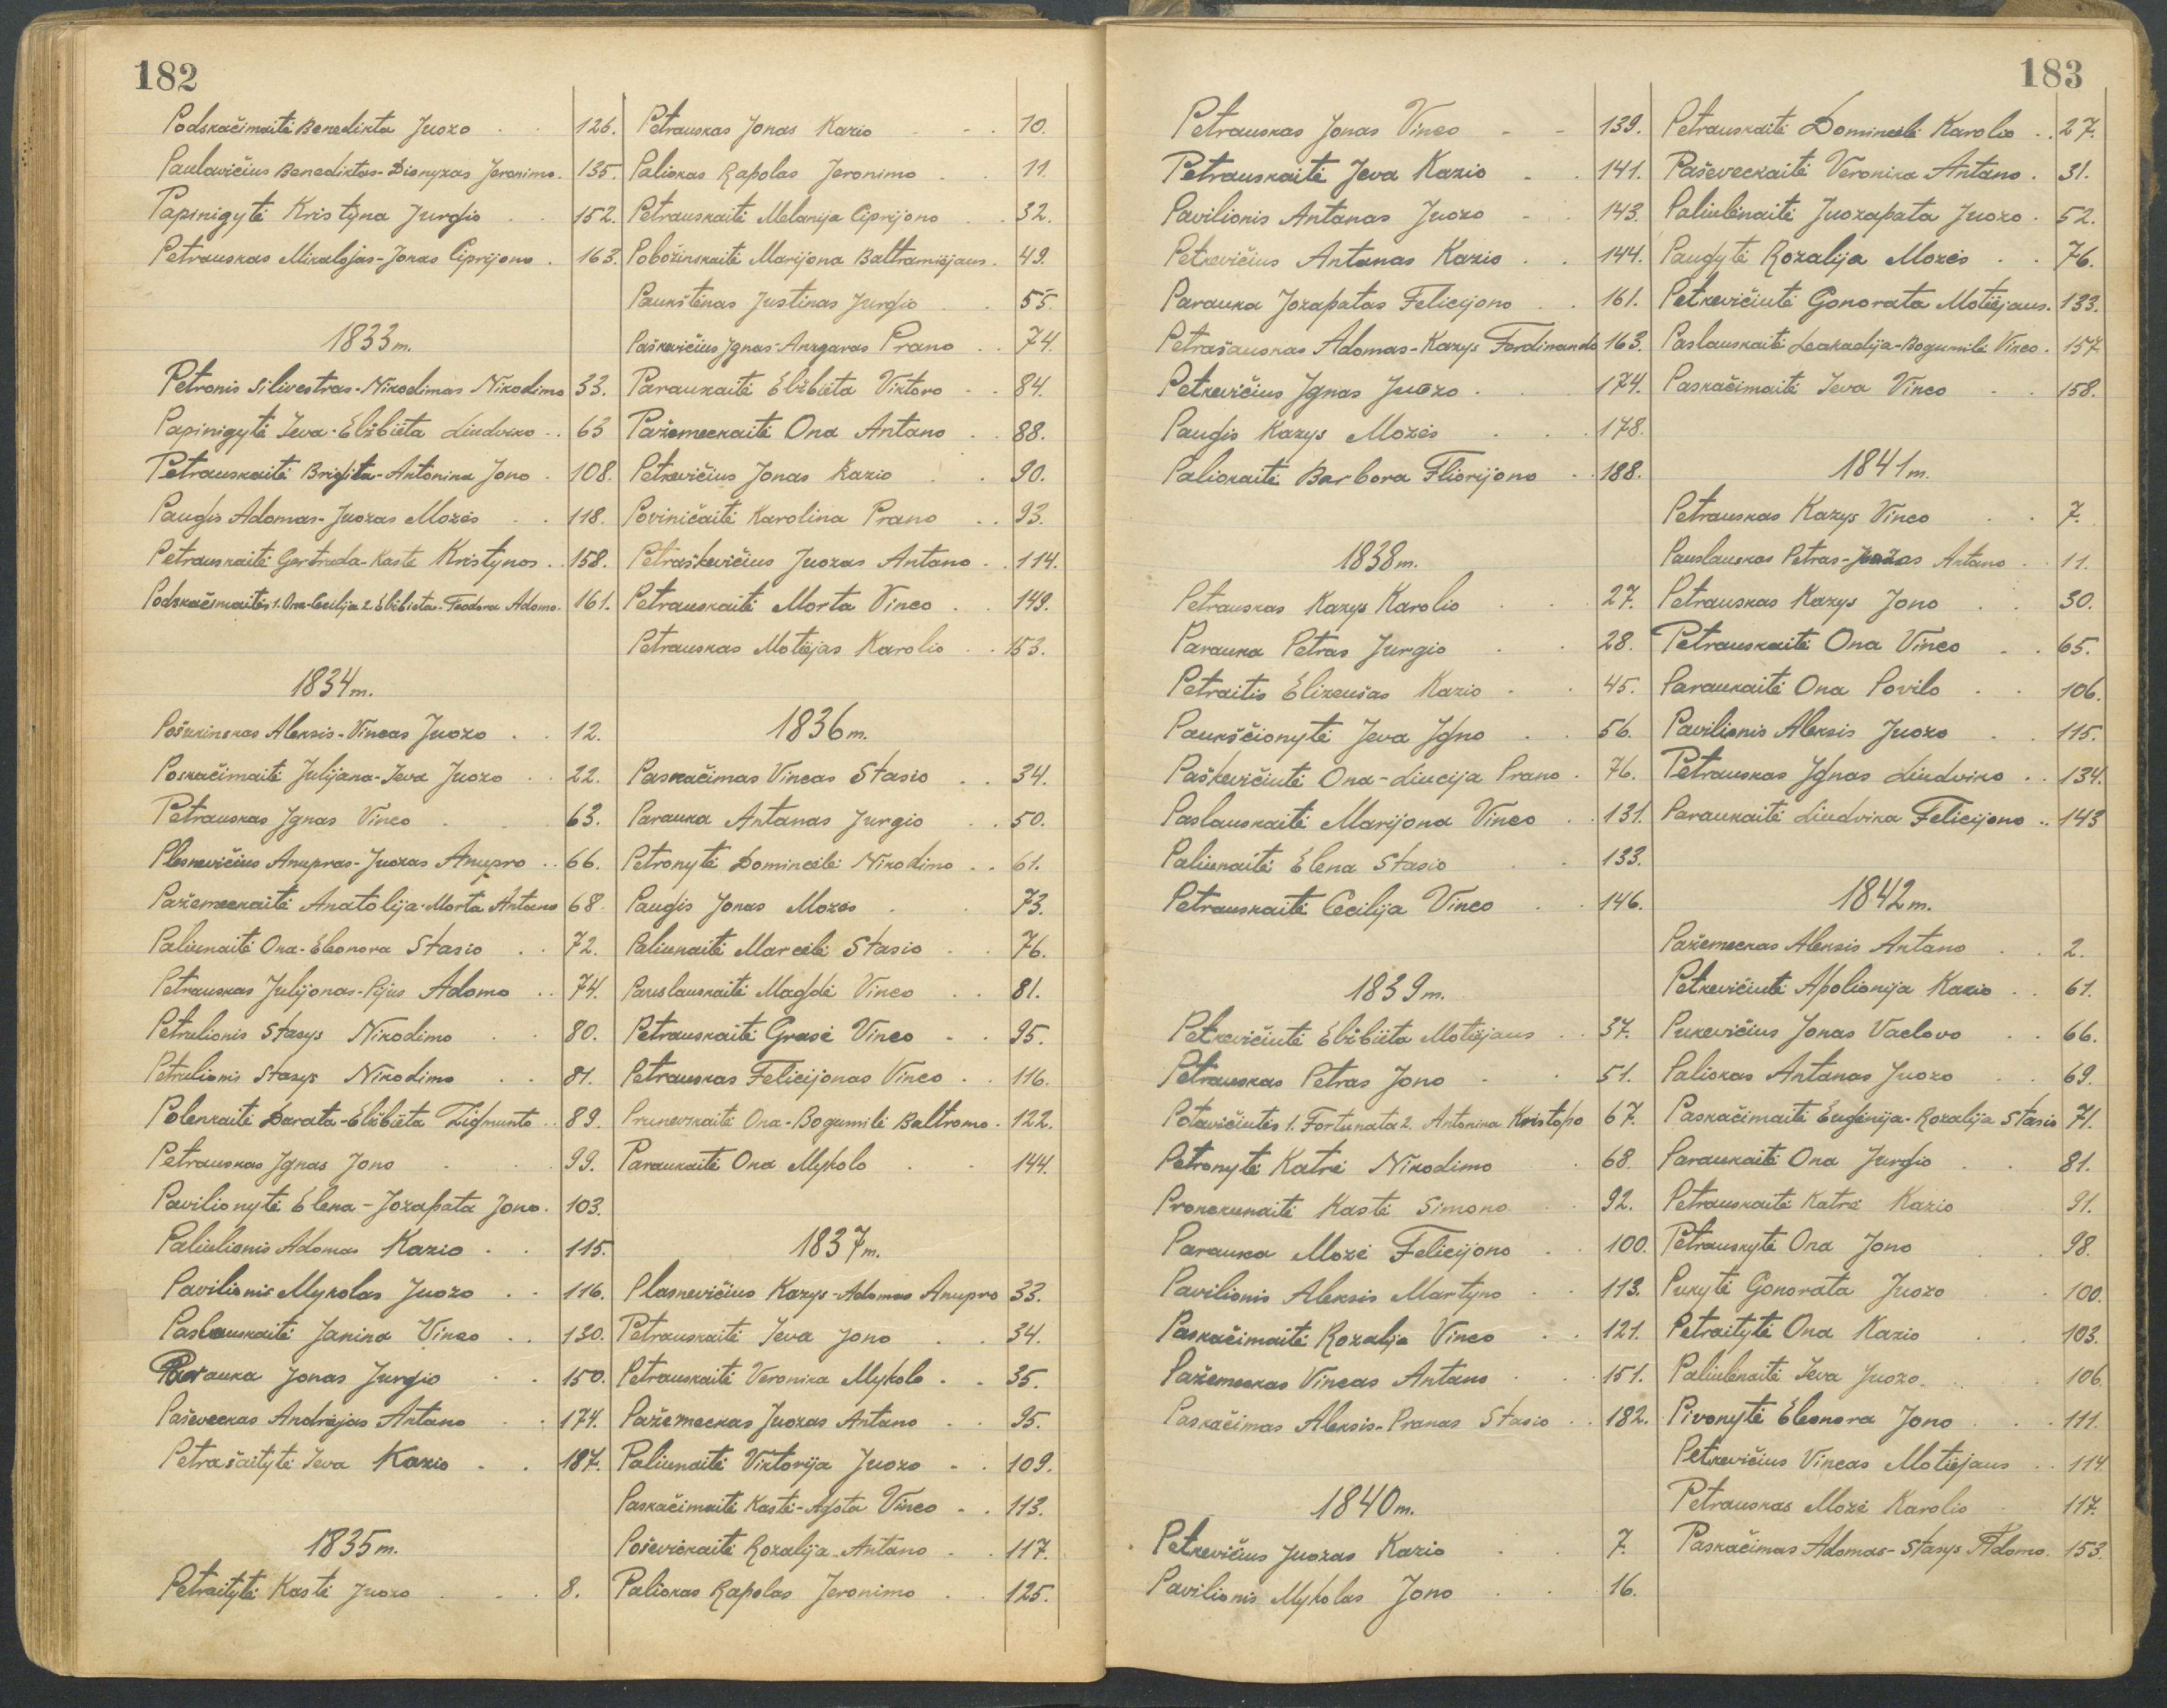 182
Podskačimaitė Benedikta Juozo . . 126.
Paulavičius Benediktas-Dionyzas Jeronimo. 135.
Papinigytė Kristyna Jurgio . . 152.
Petrauskas Mikalojas-Jonas Ciprijono . 163.
1833 m.
Petronis Silivestras-Nikodimas Nikodimo 33.
Papinigytė Ieva-Elžbieta Liudviko . . 63
Petrauskaitė Brigita-Antonina Jono . 108.
Paugis Adomas-Juozas Mozės . . 118.
Petrauskaitė Gertruda-Kastė Kristynos . . 158.
Podskačimaitės 1. Ona-Cecilija 2. Elžbieta-Teodora Adomo. 161.
1834 m.
Pošukinskas Aleksis-Vincas Juozo . . 12.
Poskačimaitė Julijana-Ieva Juozo . . 22.
Petrauskas Jgnas Vinco . . . 63.
Plesnevičius Anupras-Juozas Anupro . . 66.
Pažemeckaitė Anatolija-Morta Antano 68.
Paliunaitė Ona-Eleonora Stasio . . 72.
Petrauskas Julijonas-Pijus Adomo . . 74.
Petrulionis Stasys Nikodimo . . 80.
Petrulionis Stasys Nikodimo . . 81.
Polenkaitė Darata-Elžbieta Zigmunto . . 89.
Petrauskas Jgnas Jono . . . 99.
Pavilionytė Elena-Jozapata Jono. 103.
Paliulionis Adomas Kazio . . 115.
Pavilionis Mykolas Juozo . . 116.
Paslauskaitė Janina Vinco . . 130.
Parauka Jonas Jurgio . . 150.
Paševeckas Andrėjas Antano . . 174.
Petrašaitytė Ieva Kazio . . 187.
1835 m.
Petraitytė Kastė Juozo . . . 8.
Petrauskas Jonas Kazio . . . 10.
Paliokas Rapolas Jeronimo . . 11.
Petrauskaitė Melanija Ciprijono . . 32.
Pobožinskaitė Marijona Baltramiejaus. 49.
Paukštėnas Justinas Jurgio . . 55.
Paškevičius Jgnas-Anzgaras Prano . . 74.
Paraukaitė Elžbieta Viktoro . . 84.
Pažemeckaitė Ona Antano . . 88.
Petkevičius Jonas Kazio . . 90.
Poviničaitė Karolina Prano . . 93.
Petraškevičius Juozas Antano . . 114.
Petrauskaitė Morta Vinco . . 149.
Petrauskas Motiejas Karolio . . 153.
1836 m.
Paskačimas Vincas Stasio . . 34.
Parauka Antanas Jurgio . . 50.
Petronytė Domincėlė Nikodimo . . 61.
Paugis Jonas Mozės . . 73.
Paliunaitė Marcelė Stasio . . 76.
Pauslauskaitė Magdė Vinco . . 81.
Petrauskaitė Grasė Vinco . . 95.
Petrauskas Felicijonas Vinco . . 116.
Prunevskaitė Ona-Bogumilė Baltromo. 122.
Paraukaitė Ona Mykolo . . 144.
1837 m.
Plasnevičius Kazys-Adomas Anupro 33.
Petrauskaitė Ieva Jono . . 34.
Petrauskaitė Veronika Mykolo . . 35.
Pažemeckas Juozas Antano . . 95.
Paliunaitė Viktorija Juozo . . 109.
Paskačimaitė Kastė-Agota Vinco . . 113.
Poševickaitė Rozalija Antano . . 117.
Paliokas Rapolas Jeronimo . . 125.
183
Petrauskas Jonas Vinco . . 139.
Petrauskaitė Jeva Kazio . . 141.
Pavilionis Antanas Juozo . . 143.
Petkevičius Antanas Kazio . . 144.
Parauka Jozapatas Felicijono . . 161.
Petrašauskas Adomas-Kazys Ferdinando 163.
Petkevičius Jgnas Juozo . . . 174.
Paugis Kazys Mozės . . . 178.
Paliokaitė Barbora Fliorijono . . 188.
1838 m.
Petrauskas Kazys Karolio . . . 27.
Parauka Petras Jurgio . . 28.
Petraitis Elizeušas Kazio . . 45.
Paukščionytė Jeva Jgno . . 56.
Paškevičiutė Ona-Liucija Prano . 76.
Paslauskaitė Marijona Vinco . . 131.
Paliunaitė Elena Stasio . . 133.
Petrauskaitė Cecilija Vinco . . 146.
1839 m.
Petkevičiutė Elžbieta Motiejaus . . 37.
Petrauskas Petras Jono . . 51.
Potavičiutės 1. Fortunata 2. Antonina Kristopo 67.
Petronytė Katrė Nikodimo . 68.
Pronckunaitė Kastė Simono . . 92.
Parauka Mozė Felicijono . . 100.
Pavilionis Aleksis Martyno . . 113.
Paskačimaitė Rozalija Vinco . . 121.
Pažemeckas Vincas Antano . . . 151.
Paskačimas Aleksis-Pranas Stasio . . 182.
1840 m.
Petkevičius Juozas Kazio . . 7.
Pavilionis Mykolas Jono . . 16.
Petrauskaitė Domincėlė Karolio . . 27.
Paševeckaitė Veronika Antano . 31.
Paliulėnaitė Juozapata Juozo . 52.
Paugytė Rozalija Mozės . . 76.
Petkevičiutė Gonorata Motiejaus. 133.
Paslauskaitė Leokadija-Bogumilė Vinco . 157
Paskačimaitė Ieva Vinco . . 158.
1841 m.
Petrauskas Kazys Vinco . . 7.
Pauslauskas Petras-Juozas Antano . . 11.
Petrauskas Kazys Jono . . 30.
Petrauskaitė Ona Vinco . . 65.
Paraukaitė Ona Povilo . . 106.
Pavilionis Aleksis Juozo . . 115.
Petrauskas Jgnas Liudviko . . 134.
Paraukaitė Liudvika Felicijono . . 143
1842 m.
Pažemeckas Aleksis Antano . . 2.
Petkevičiutė Apolionija Kazio . . 61.
Pukevičius Jonas Vaclovo . . 66.
Paliokas Antanas Juozo . . 69.
Paskačimaitė Eugėnija-Rozalija Stasio 71.
Paraukaitė Ona Jurgio . . 81.
Petrauskaitė Katrė Kazio 91.
Petrauskytė Ona Jono . . 98.
Pukytė Gonorata Juozo . . 100.
Petraitytė Ona Kazio . . 103.
Paliulėnaitė Ieva Juozo . . . 106.
Pivonytė Eleonora Jono . . . 111.
Petkevičius Vincas Motiejaus . . 114.
Petrauskas Mozė Karolio . 117.
Paskačimas Adomas-Stasys Adomo. 153.